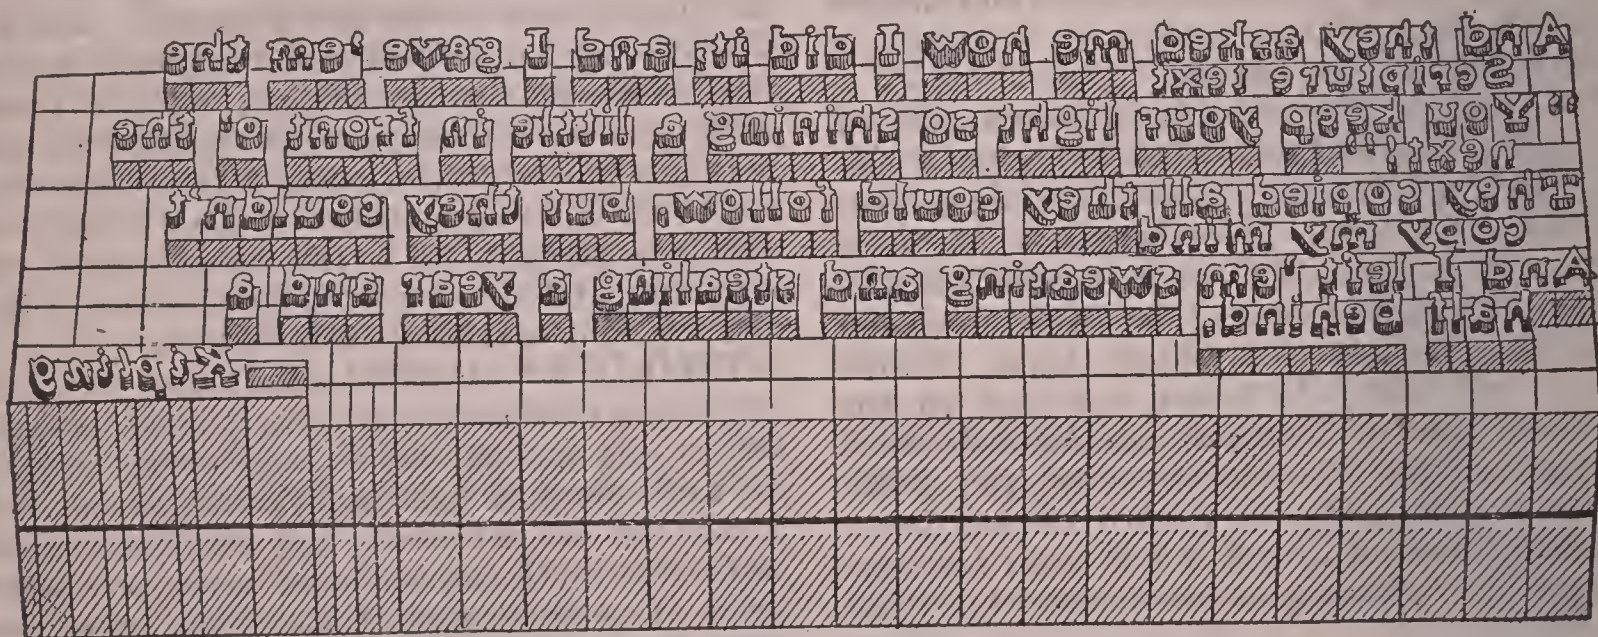 And they asked me how I did it, and I gave 'em the
Scripture text
"You keep your light so shining a little in front o' the
next!"
They copied all they could follow, but they couldn't
copy my mind
And I left 'em sweating and stealing a year and a
half behind.
Kipling